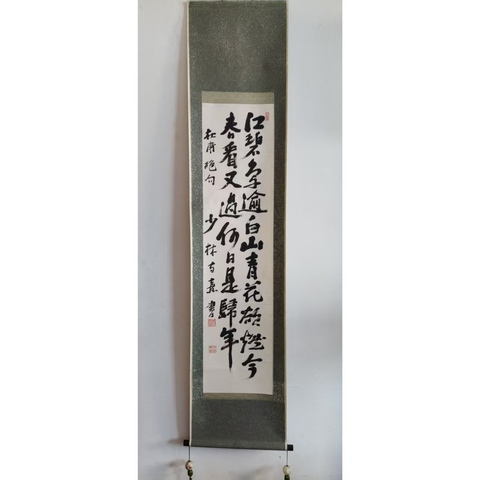 江碧鸟逾白山青花欲燃今
春看又過何日是歸年
杜甫絕句
少林寺書